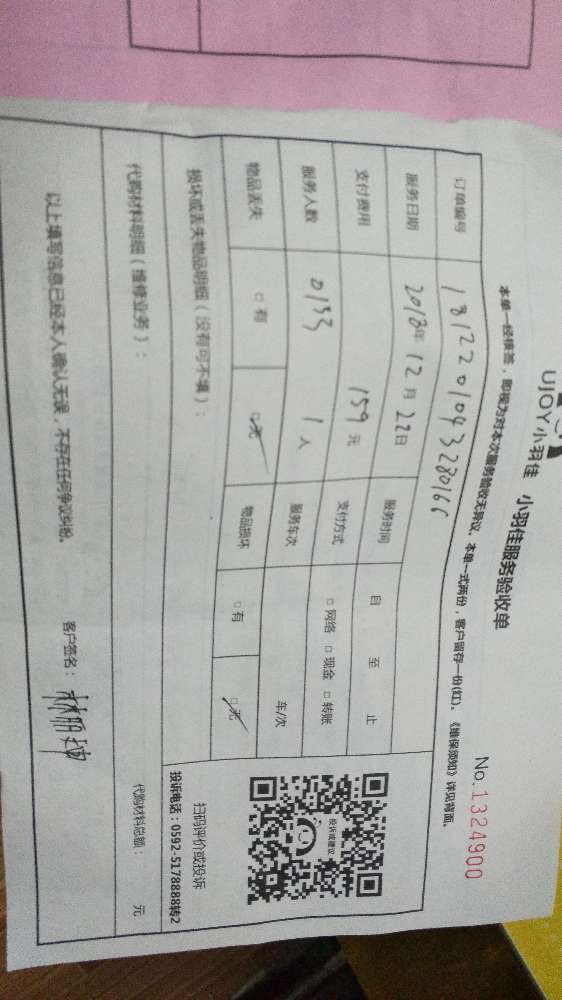 UJOY小羽佳 小羽佳服务验收单
No.1324900
本单一经核签，即视为对本次服务验收无异议。本单一式两份，客户留存一份(红)。《维保须知》详见背面。
订单编号 181220104328016
服务日期 2018年12月22日 服务时间 自 至 止
支付费用 159元 支付方式 □网络 □现金 □转账
服务人数 0133 1人 服务车次 车/次
物品丢失 □有 □无 物品损坏 □有 □无
损坏或丢失物品明细（没有可不填）：
投诉或建议
扫码评价或投诉
投诉电话：0592-5178888转2
代购材料明细（维修业务）： 代购材料总额： 元
以上填写信息已经本人确认无误，不存在任何争议纠纷。 客户签名：